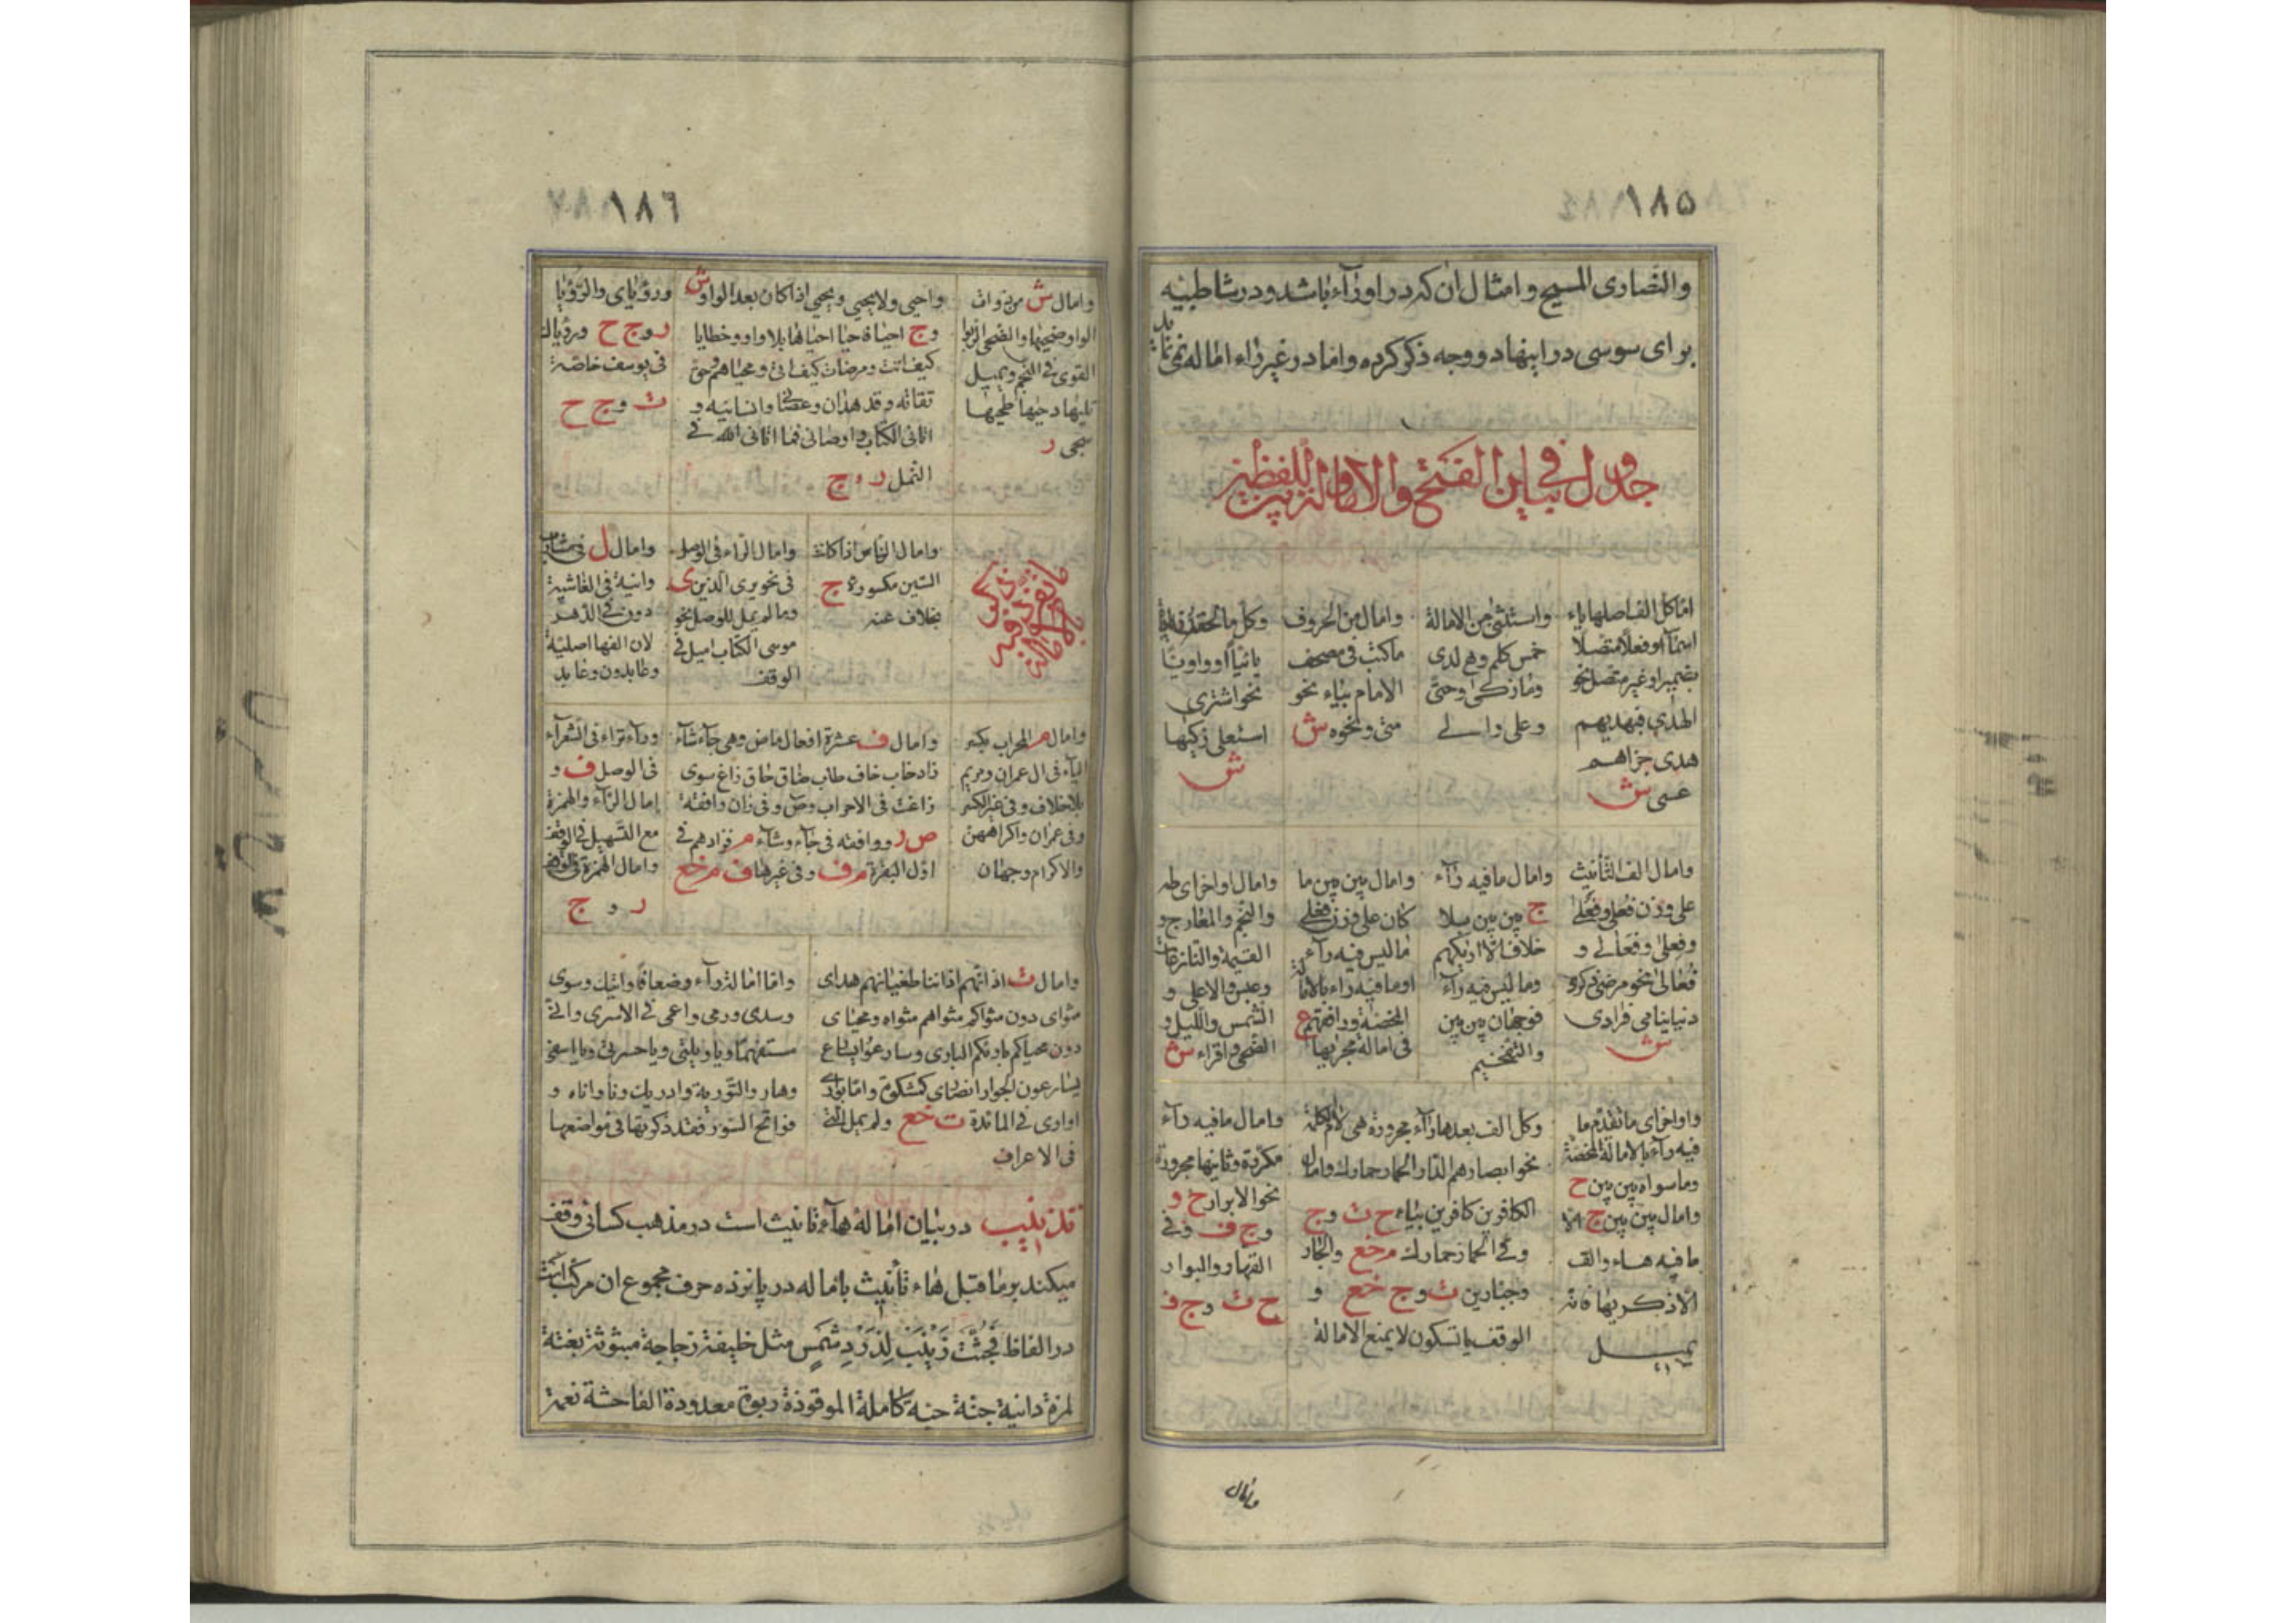 ١٨٥
والنصاری المسیح و امثال ان که در او راء باشد و در شاطبیه
برای سوسی در اینها دو وجه ذکر کرده و اما در غیر راء اماله نمی
جدول فی بیان الفتح والامالة وبین اللفظین
اما کل الف اصلها یاء
اسما او فعلا متصلا
بضمیر او غیر متصل نحو
الهدی فبهدیهم
هدی جزاهم
عسی ش
واستثنی من الامالة
خمس کلم وهی لدی
وما زکی وحتی
وعلی والی
وامال من الحروف
ما کتب فی مصحف
الامام بیاء نحو
متی ونحوه ش
وکل ما
یائیا او واویا
نحو اشتری
استعلی زکیها
ش
وامال الف التأنیث
علی وزن فعلی وفعلی
وفعلی وفعالی و
فعالی نحو مرضی ذکری
دنیا یتامی فرادی
ش
وامال ما فیه راء
ج بین بین بلا
خلاف الا اریکهم
وما لیس فیه راء
فوجهان بین بین
والتفخیم
وامال بین بین ما
کان علی وزن فعلی
ما لیس فیه راء
او ما فیه راء بالامالة
المحضة ع
فی امالة مجریها
وامال اواخر ای طه
والنجم والمعارج و
القیمة والنازعات
وعبس والاعلی و
الشمس واللیل و
الضحی واقراء ش
واواخر ای ما تقدم ما
فیه راء بالامالة المحضة
وما سواه بین بین ح
وامال بین بین ج الا
ما فیه هاء والف
الا ذکریها فانه
یمیل
وکل الف بعدها راء مجرورة هی لام کلمة
نحو ابصارهم الدار الحمار حمارک وامال
الکافرین کافرین بیاء ح ت وج
وفی الحمار حمارک م خع والجار
وجبارین ت وج خع و
الوقف بالسکون لا یمنع الامالة
وامال ما فیه راء
مکررة وثانیها مجرورة
نحو الابرار ح و
وج ف وفی
القهار والبوار
ح ت وج ف
وامال
١٨٦
وامال ش من ذوات
الواو ضحیها والضحی الربوا
القوی فی النجم ویمیل
تلیها دحیها طحیها
سجی ر
واحیی ولا یحیی ویحیی اذا کان بعد الواو ش
وج احیا فاحیا احیاها بلا واو وخطایا
کیف اتت ومرضات کیف اتی ومحیاهم وحق
تقاته وقد هدان وعصانی وانسانیه و
اتانی الکتاب واوصانی فما اتانی الله فی
النمل ر وج
ورؤیای والرؤیا
ر وج ح ورؤیاک
فی یوسف خاصة
ت وج ح
وامال الناس اذا کانت
السین مکسورة ج
بخلاف عنه
وامال الراء فی الوصل
فی نحو یری الذین ی
وما لم یمل للوصل نحو
موسی الکتاب امیل فی
الوقف
وامال ل فی مشارب
وانیة فی الغاشیة
دون فی الدهر
لان الفها اصلیة
وعابدون وعابد
وامال م المحراب بکسر
الباء فی ال عمران ومریم
بلا خلاف وفی غیر الکسر
وفی عمران واکراههن
والاکرام وجهان
وامال ف عشرة افعال ماض وهی جاء شاء
زاد خاب خاف طاب ضاق حاق زاغ سوی
زاغت فی الاحزاب وص وفی ران وافقه
ص ر ووافقه فی جاء وشاء م فزادهم فی
اول البقرة م ف وفی غیرها ف م خع
وراء تراء فی الشعراء
فی الوصل ف و
امال الراء والهمزة
مع التسهیل فی الوقف
وامال الهمزة فی الوقف
ر و ج
وامال ت اذانهم اذاننا طغیانهم هدای
مثوای دون مثواکم مثواهم مثواه ومحیای
دون محیاکم بارئکم الباری وسارعوا نسارع
یسارعون الجوار انصاری کمشکوة واما یواری
اواری فی المائدة ت خع ولم یمل التی
فی الاعراف
واما امالة راء وضعافا واتیک وسوی
وسدی ورمی واعمی فی الاسری وانی
مستفهما ویا ویلتی ویا حسرتی ویا اسفی
وهار والتوریة وادریک ونأ واناه و
فواتح السور فقد ذکرتها فی مواضعها
تذنیب در بیان اماله هاء تانیث است در مذهب کسائی وقف
میکند بر ما قبل هاء تأنیث باماله در پانزده حرف مجموع ان مرکب است
در الفاظ فجثت زینب لذود شمس مثل خلیفة زجاجة مبثوثة بغتة
لمزة دانیة جنة حبة کاملة الموقوذة ربوة معدودة الفاحشة نعمة